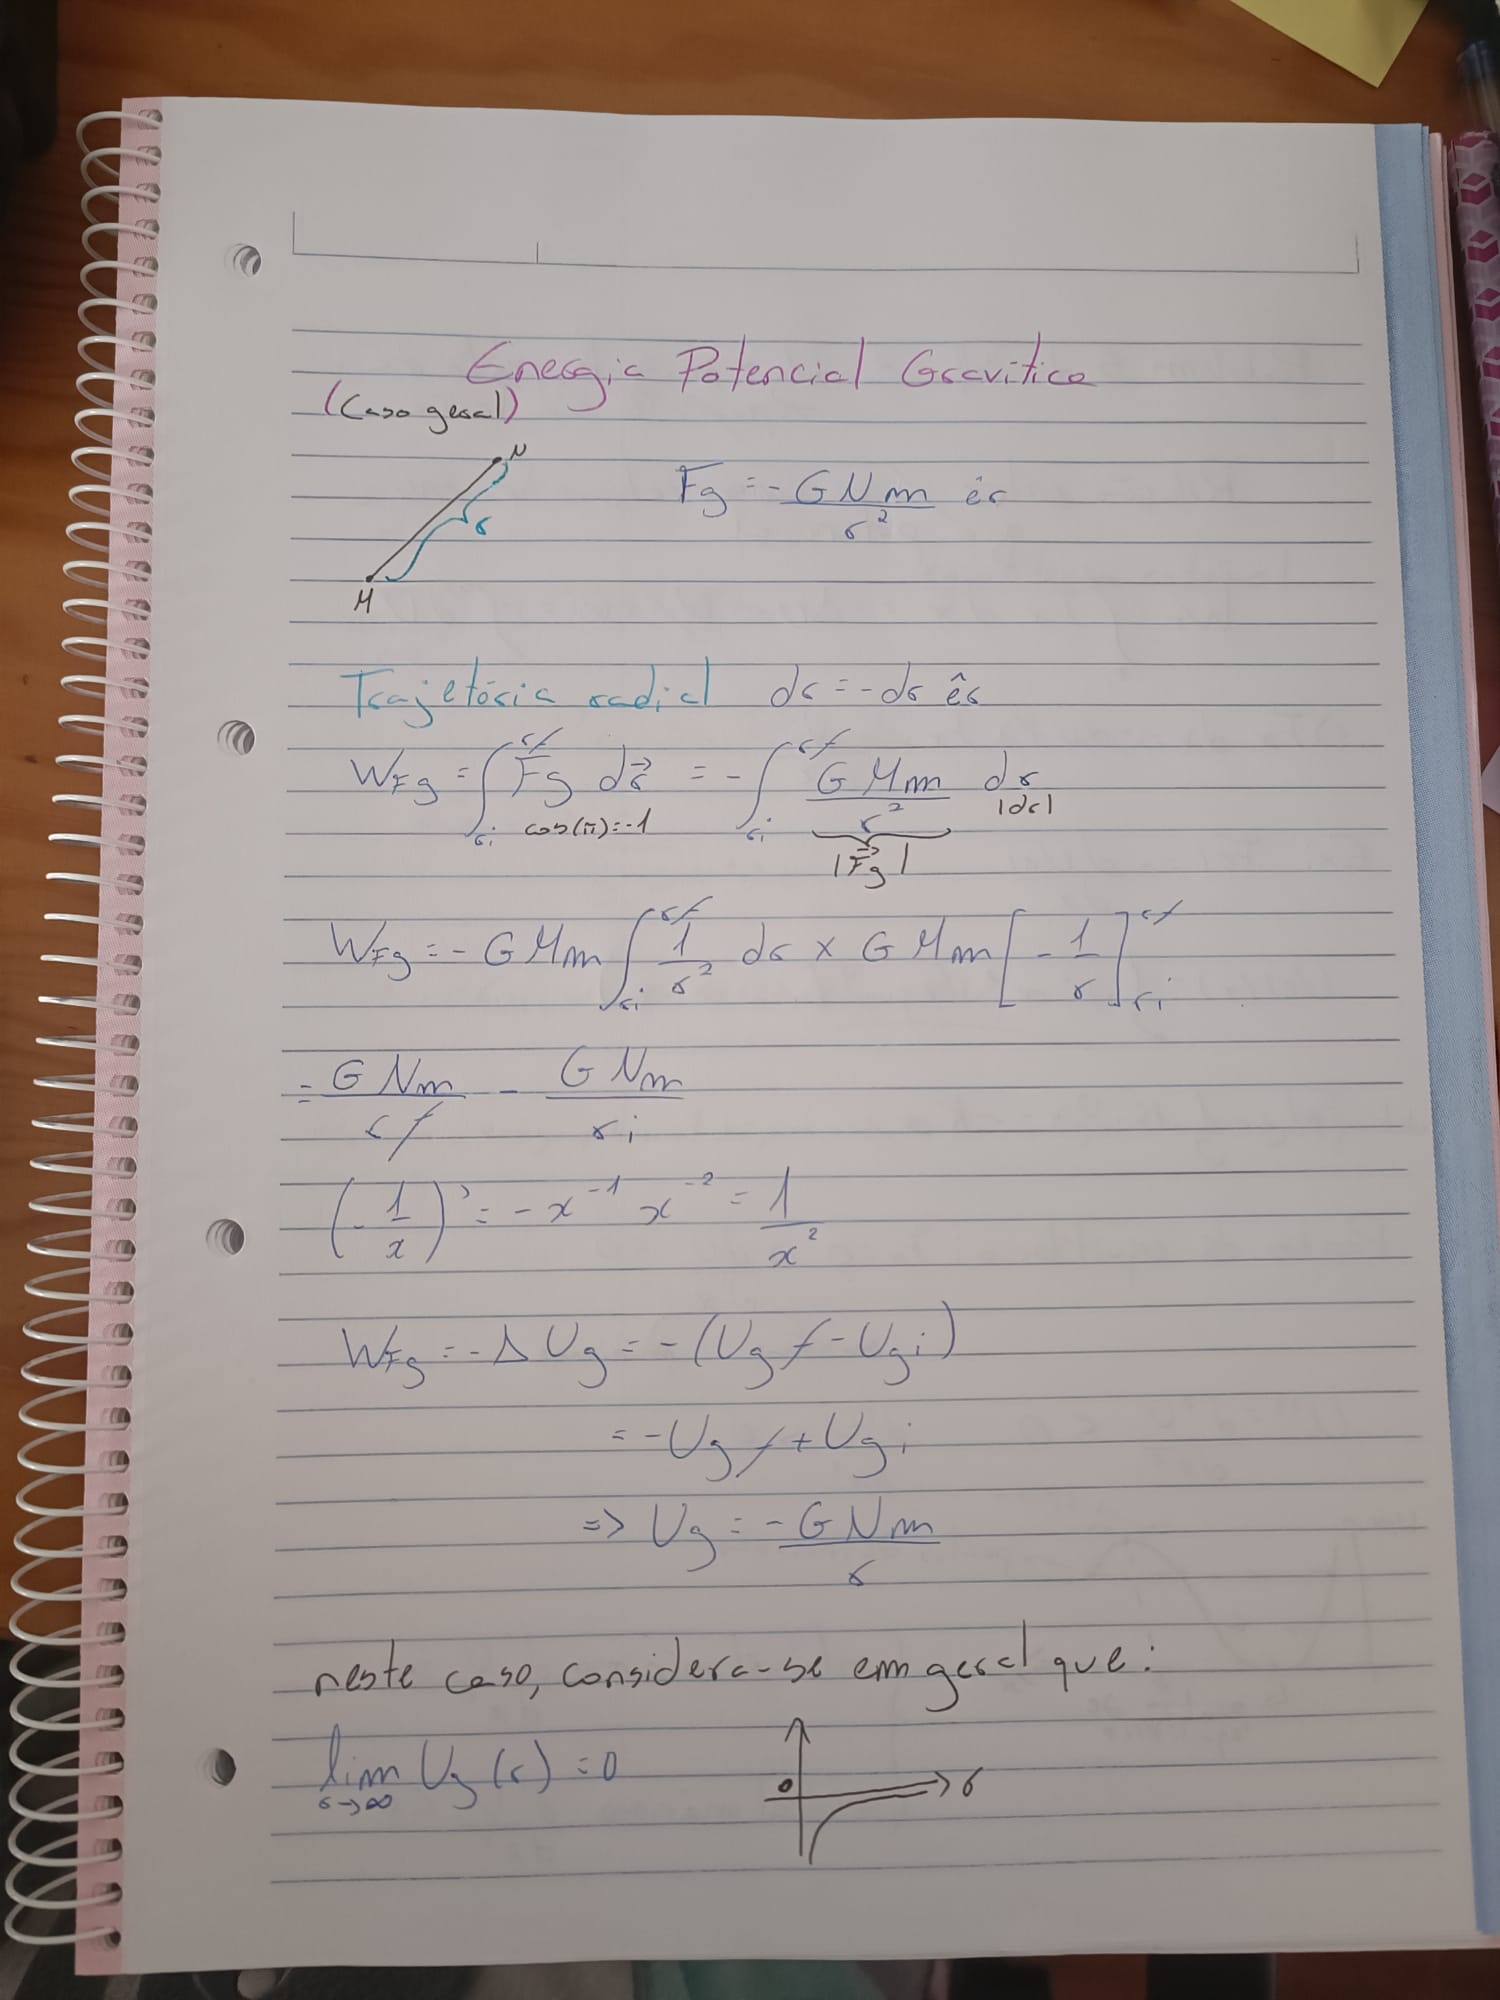 Energia Potencial Gravítica
(Caso geral)
N
r
M
Fg = - G N m / r² êr
Trajetória radial dr = - dr êr
W_Fg = ∫_ri^rf F⃗g dr⃗ = - ∫_ri^rf G M m / r² dr
cos(π) = -1 |F⃗g| |dr|
W_Fg = - G M m ∫_ri^rf 1/r² dr × G M m [ - 1/r ]_ri^rf
= G N m / rf - G N m / ri
( - 1/x )' = - x⁻¹ x⁻² = 1/x²
W_Fg = - Δ Ug = - (Ug f - Ug i)
= - Ug f + Ug i
=> Ug = - G N m / r
neste caso, considera-se em geral que:
lim r→∞ Ug (r) = 0
0 r